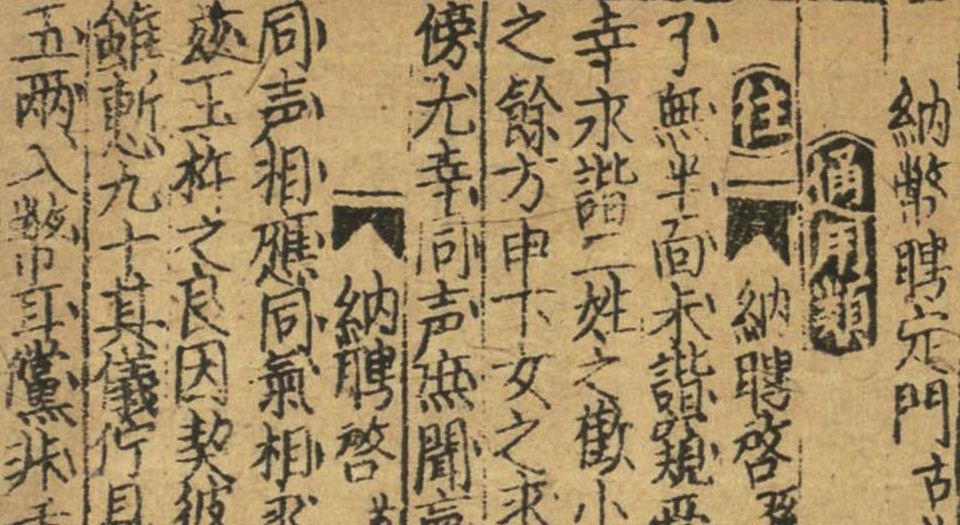 納幣聘定門古
通用類
往 納聘啓
了無半面未諧覿
幸永諧二姓之歡小
之餘方申卜女之求
傍尤幸同声無聞
納聘啓
同声相應同氣相求
茲玉杵之良因契彼
雖慙九十其儀佇見
五兩入幣帛耳儻非